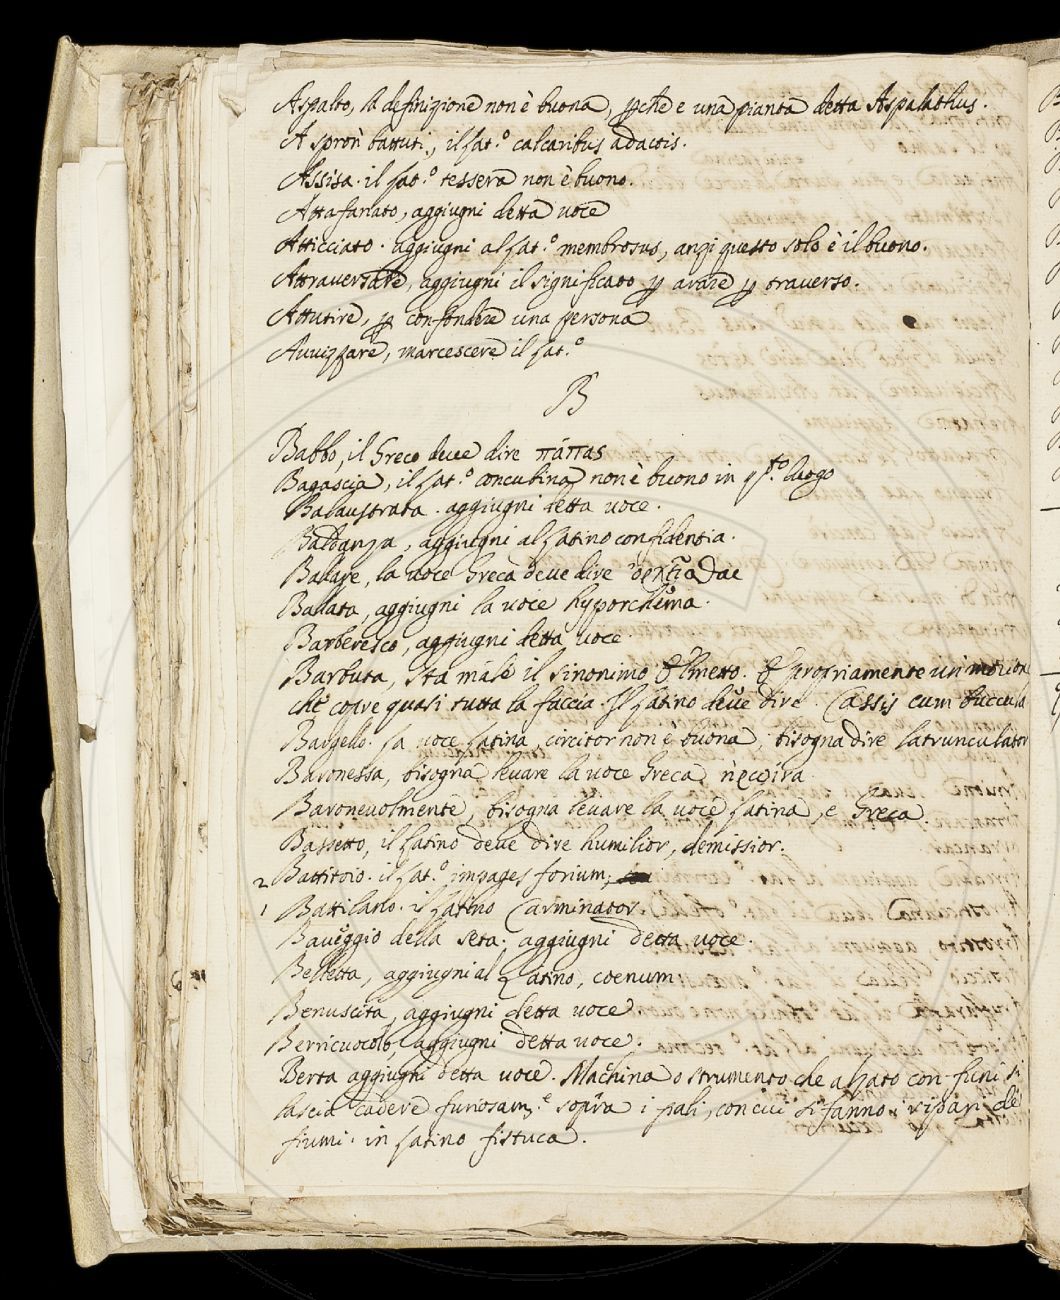 Aspalto, la definizione non è buona, pche è una pianta detta Aspalathus.
A spron battuti, il lat.º calcaribus adactis.
Assisa. il lat.º tessera non è buono.
Attafanato, aggiugni detta voce
Atticciato. aggiugni al lat.º membrosus, anzi questo solo è il buono.
Attraversare, aggiugni il significato p arare p traverso.
Attutire, p confondere una persona
Avvizzare, marcescere il lat.º
B
Babbo, il Greco deve dire πάππας
Bagascia, il lat.º concubina non è buono in qto. luogo
Balaustrata. aggiugni detta voce.
Baldanza, aggiugni al latino confidentia.
Ballare, la voce Greca deve dire
Ballata, aggiugni la voce hyporchema.
Barberesco, aggiugni detta voce
Barbuta, sta male il sinonimo Elmetto. È propriamente un morione
che copre quasi tutta la faccia. Il latino deve dire Cassis cum buccula
Bargello. La voce latina circitor non è buona, bisogna dire latrunculator
Baronessa, bisogna levare la voce Greca
Baronevolmente, bisogna levare la voce latina, e Greca.
Bassetto, il latino deve dire humilior, demissior.
2 Battitoio. il lat.º impages forium,
1 Battilano. il latino Carminator.
Baveggio della seta. aggiugni detta voce.
Belletta, aggiugni al Latino, coenum
Benuscita, aggiugni detta voce
Berricuocolo, aggiugni detta voce.
Berta aggiugni detta voce. Machina o strumento che alzato con funi si
lascia cadere furiosam.e sopra i pali, con cui si fanno i ripari de'
fiumi. in latino fistuca.